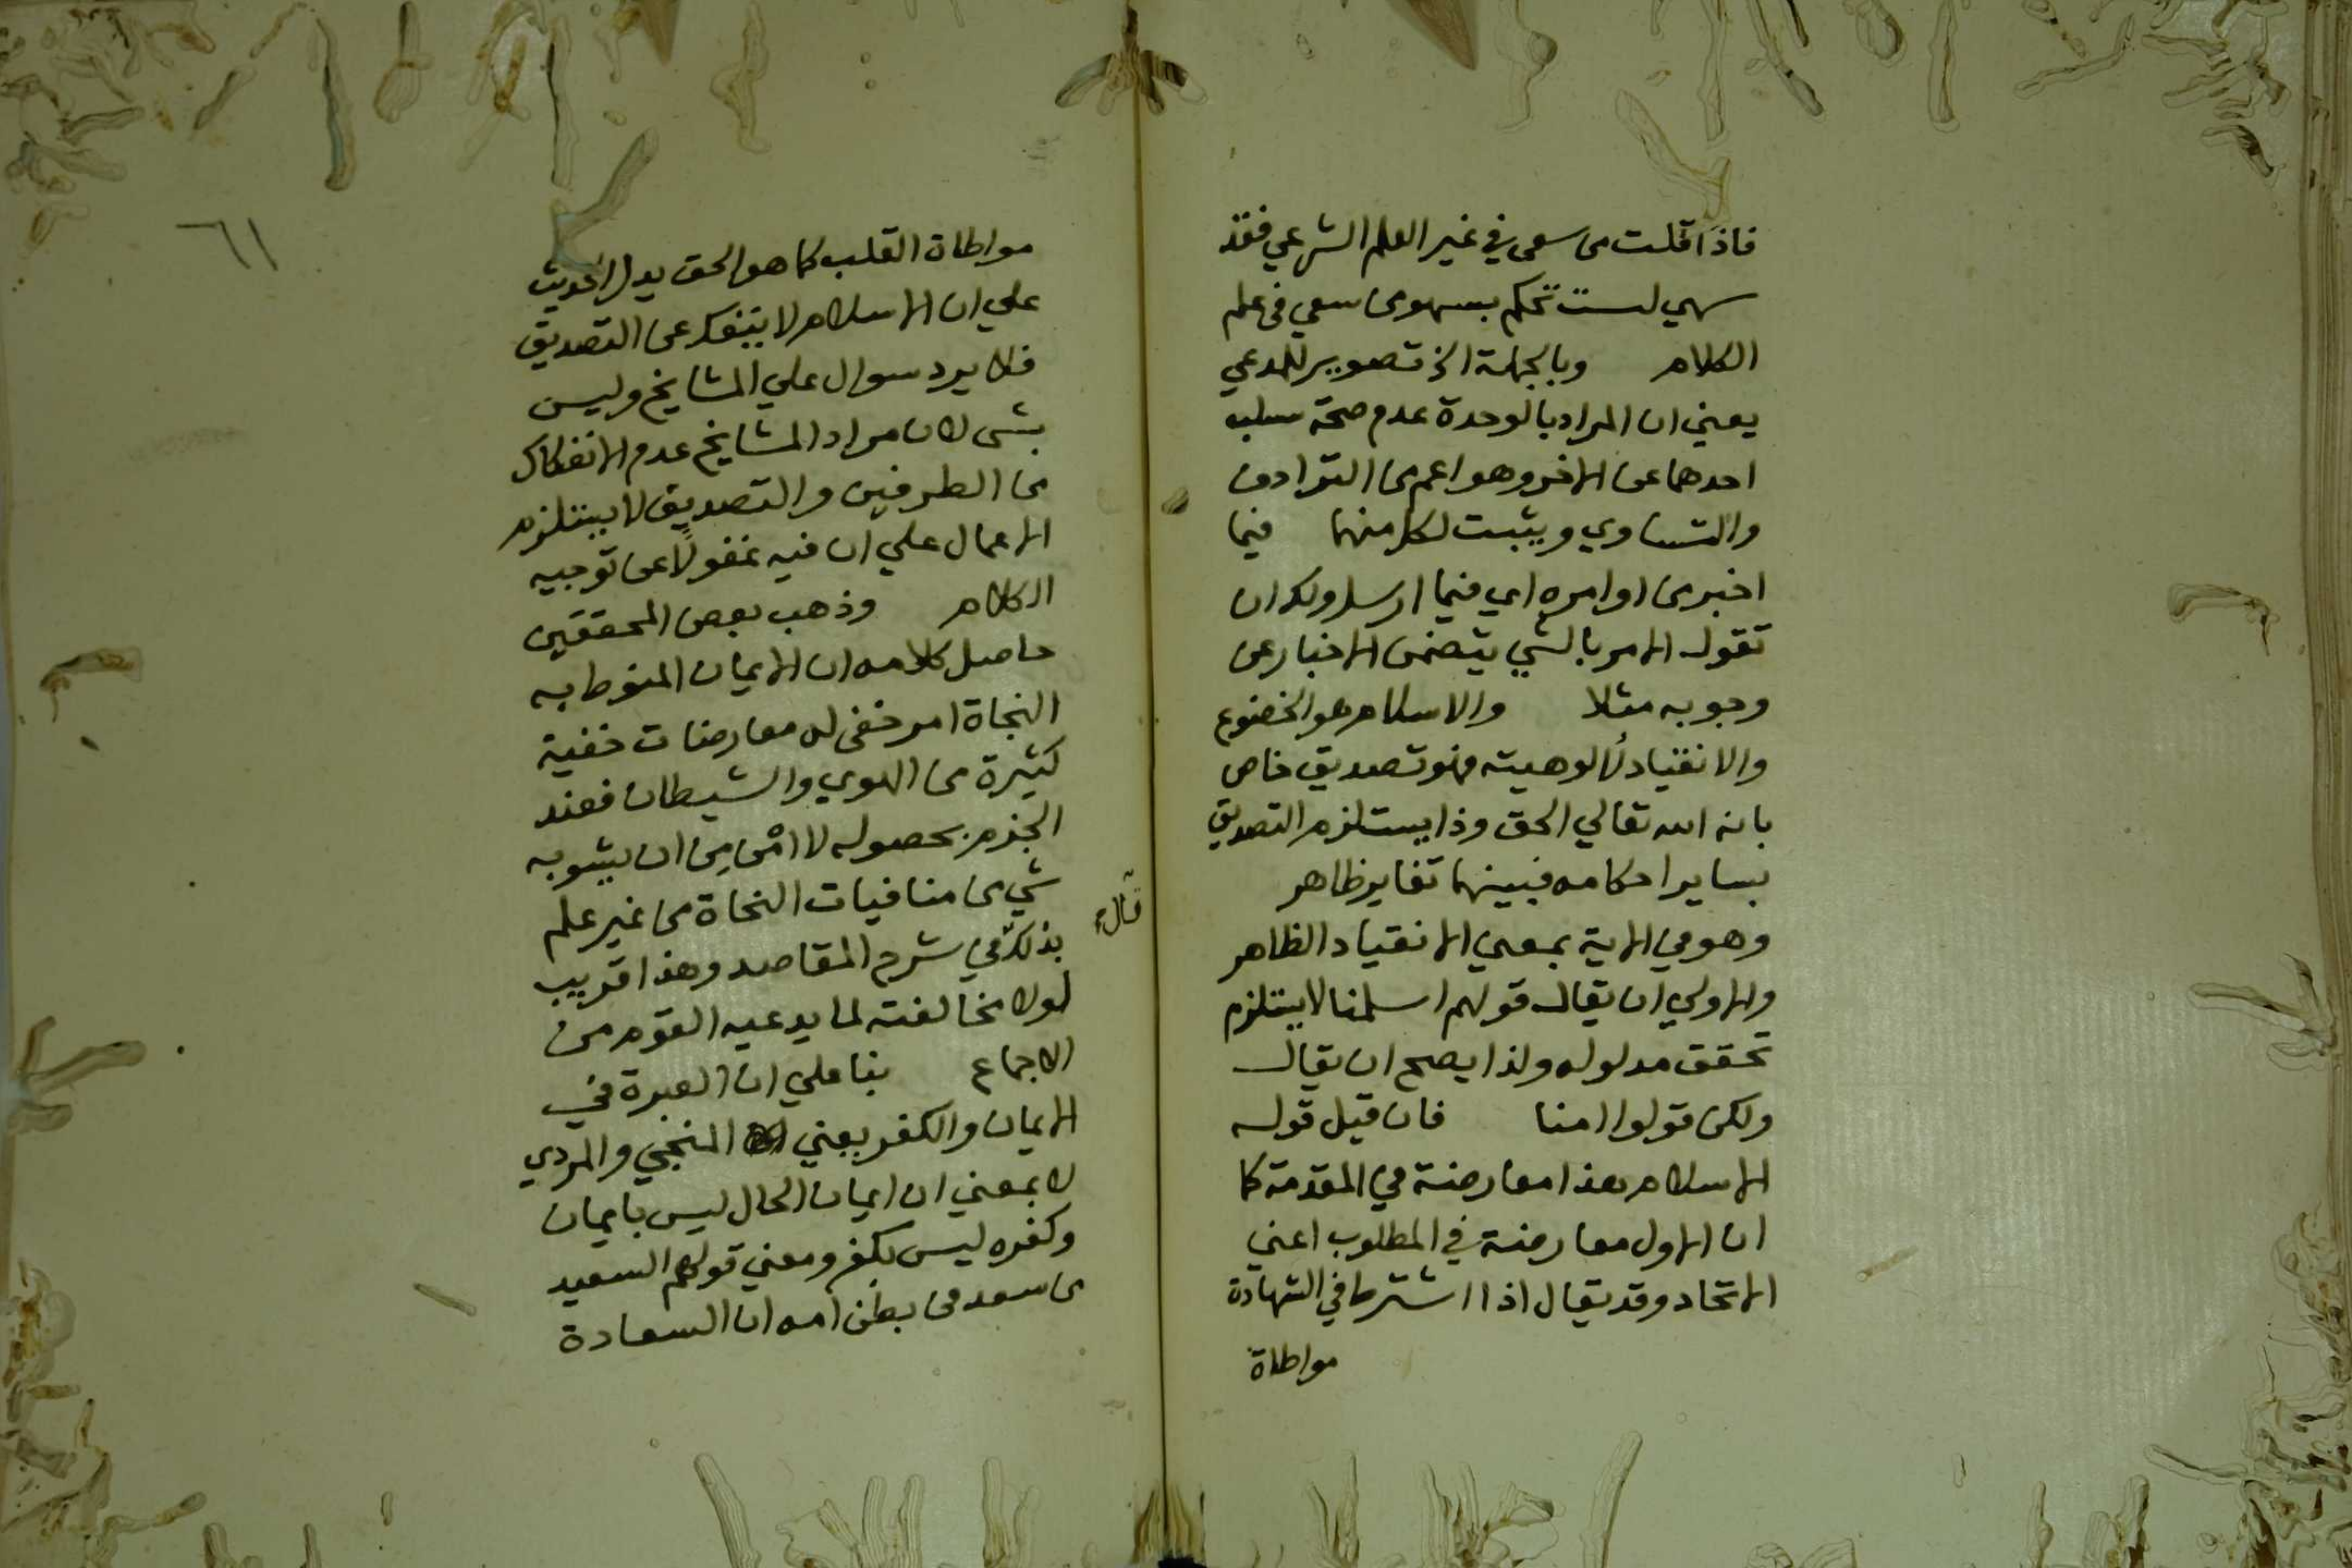 فاذا قلت من سعى في غير العلم الشرعي فقد
سهي لست تحكم بسهو من سعي في علم
الكلام وبالجملة الخ تصوير للمدعي
يعني ان المراد بالوحدة عدم صحة سلب
احدهما عن الاخر وهو اعم من الترادف
والتساوي ويثبت لكل منهما فيما
اخبر من اوامره اي فيما ارسل ولك ان
تقول الامر بالشي يتضمن الاخبار عن
وجوبه مثلا والاسلام هو الخضوع
والانقياد لالوهيته فهو تصديق خاص
بانه الله تعالي الحق وذا يستلزم التصديق
بساير احكامه فبينهما تغاير ظاهر
وهو في الاية بمعني الانقياد الظاهر
والاولي ان يقال قولهم اسلمنا لا يستلزم
تحقق مدلوله ولذا يصح ان يقال
ولكن قولوا امنا فان قيل قوله
الاسلام هذا معارضة في المقدمة كما
ان الاول معارضة في المطلوب اعني
الاتحاد وقد يقال اذا اشترط في الشهادة
مواطاة
٦١
مواطاة القلب كما هو الحق يدل الحديث
علي ان الاسلام لا ينفك عن التصديق
فلا يرد سوال علي المشايخ وليس
بشى لان مراد المشايخ عدم الانفكاك
من الطرفين والتصديق لا يستلزم
الاعمال علي ان فيه غفولا عن توجيه
الكلام وذهب بعض المحققين
حاصل كلامه ان الايمان المنوط به
النجاة امر خفى له معارضات خفية
كثيرة من الهوي والشيطان فعند
الجزم بحصوله لا امن من ان يشوبه
شي من منافيات النجاة من غير علم
بذلك في شرح المقاصد وهذا قريب
قال
لولا مخالفته لما يدعيه القوم من
الاجماع بنا علي ان العبرة في
الايمان والكفر يعني المنجي والمردي
لا بمعني ان ايمان الحال ليس بايمان
وكفره ليس بكفر ومعني قولهم السعيد
من سعد في بطن امه ان السعادة